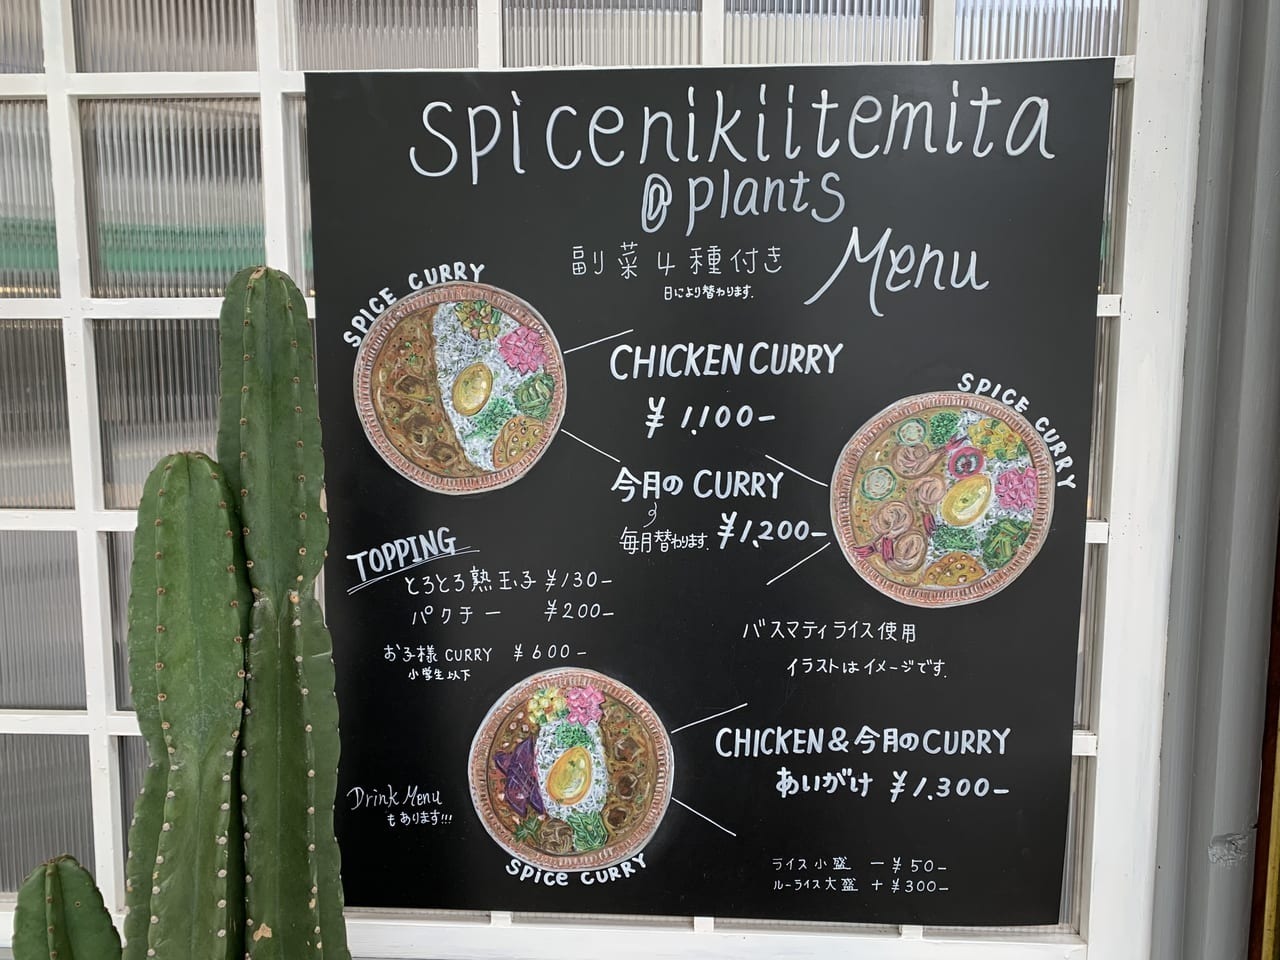 Spicenikiitemita
@plants
Menu
副菜4種付き
日により替わります.
SPICE CURRY
CHICKEN CURRY
¥1,100-
SPICE CURRY
今月の CURRY
毎月替わります. ¥1,200-
TOPPING
とろとろ熟玉子 ¥130-
パクチー ¥200-
お子様 CURRY ¥600-
小学生以下
バスマティライス使用
イラストはイメージです.
CHICKEN&今月のCURRY
あいがけ ¥1,300-
Drink Menu
もあります!!!
SPice CURRY
ライス小盛 -¥50-
ルーライス大盛 +¥300-